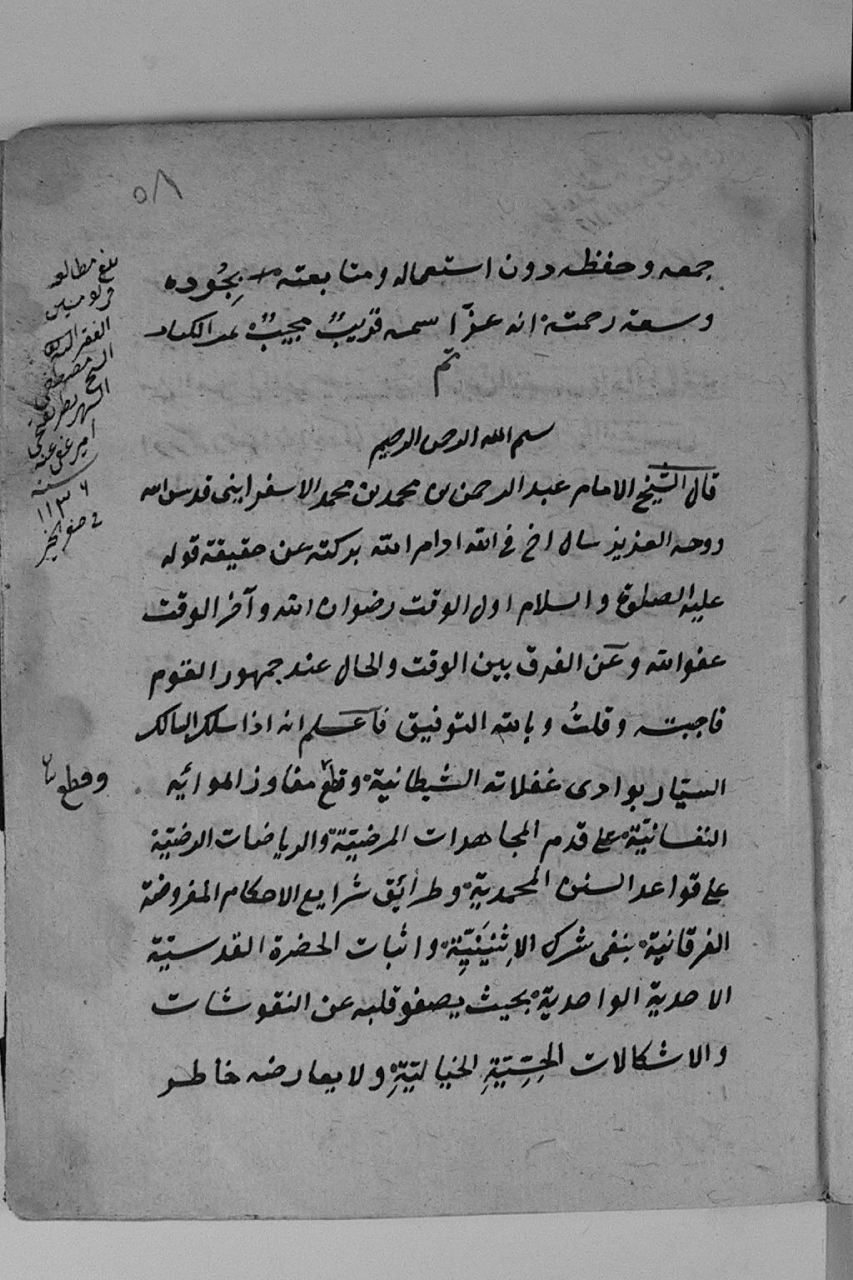 ٥٨
جمعه وحفظه دون استعماله ومتابعته بِجُوده
وسعة رحمته انه عزّ اسمه قريبٌ مجيبٌ
تم
بسم الله الرحمن الرحيم
قال الشيخ الامام عبد الرحمن بن محمد بن محمد الاسفراينى قدس الله
روحه العزيز سال اخ فى الله ادام الله بركته عن حقيقة قوله
عليه الصلوة والسلام اول الوقت رضوان الله وآخر الوقت
عفو الله وعن الفرق بين الوقت والحال عند جمهور القوم
فاجبته وقلتُ وبالله التوفيق فاعلم انه اذا سلك السالك
السيّار بوادى غفلاته الشيطانية وقطع مفاوز اهوائيه
النفسانيّة على قدم المجاهدات المرضيّة والرياضات الرضيّة
على قواعد السنن المحمدية وطرائق شرايع الاحكام المفروضة
الفرقانية بنفى شرك الاِثْنَيْنِيّة واثبات الحضرة القدسيّة
الاحدية الواحدية بحيث يصفو قلبه عن النقوشات
والاشكالات الحِسّيّة الخياليّة ولا يعارضه خاطر
بلغ مطالعه
الفقير
الشيخ مصطفى
الشهير
امير عفى عنه
سنة
١١٣٦
فى صفر الخير
وقطع